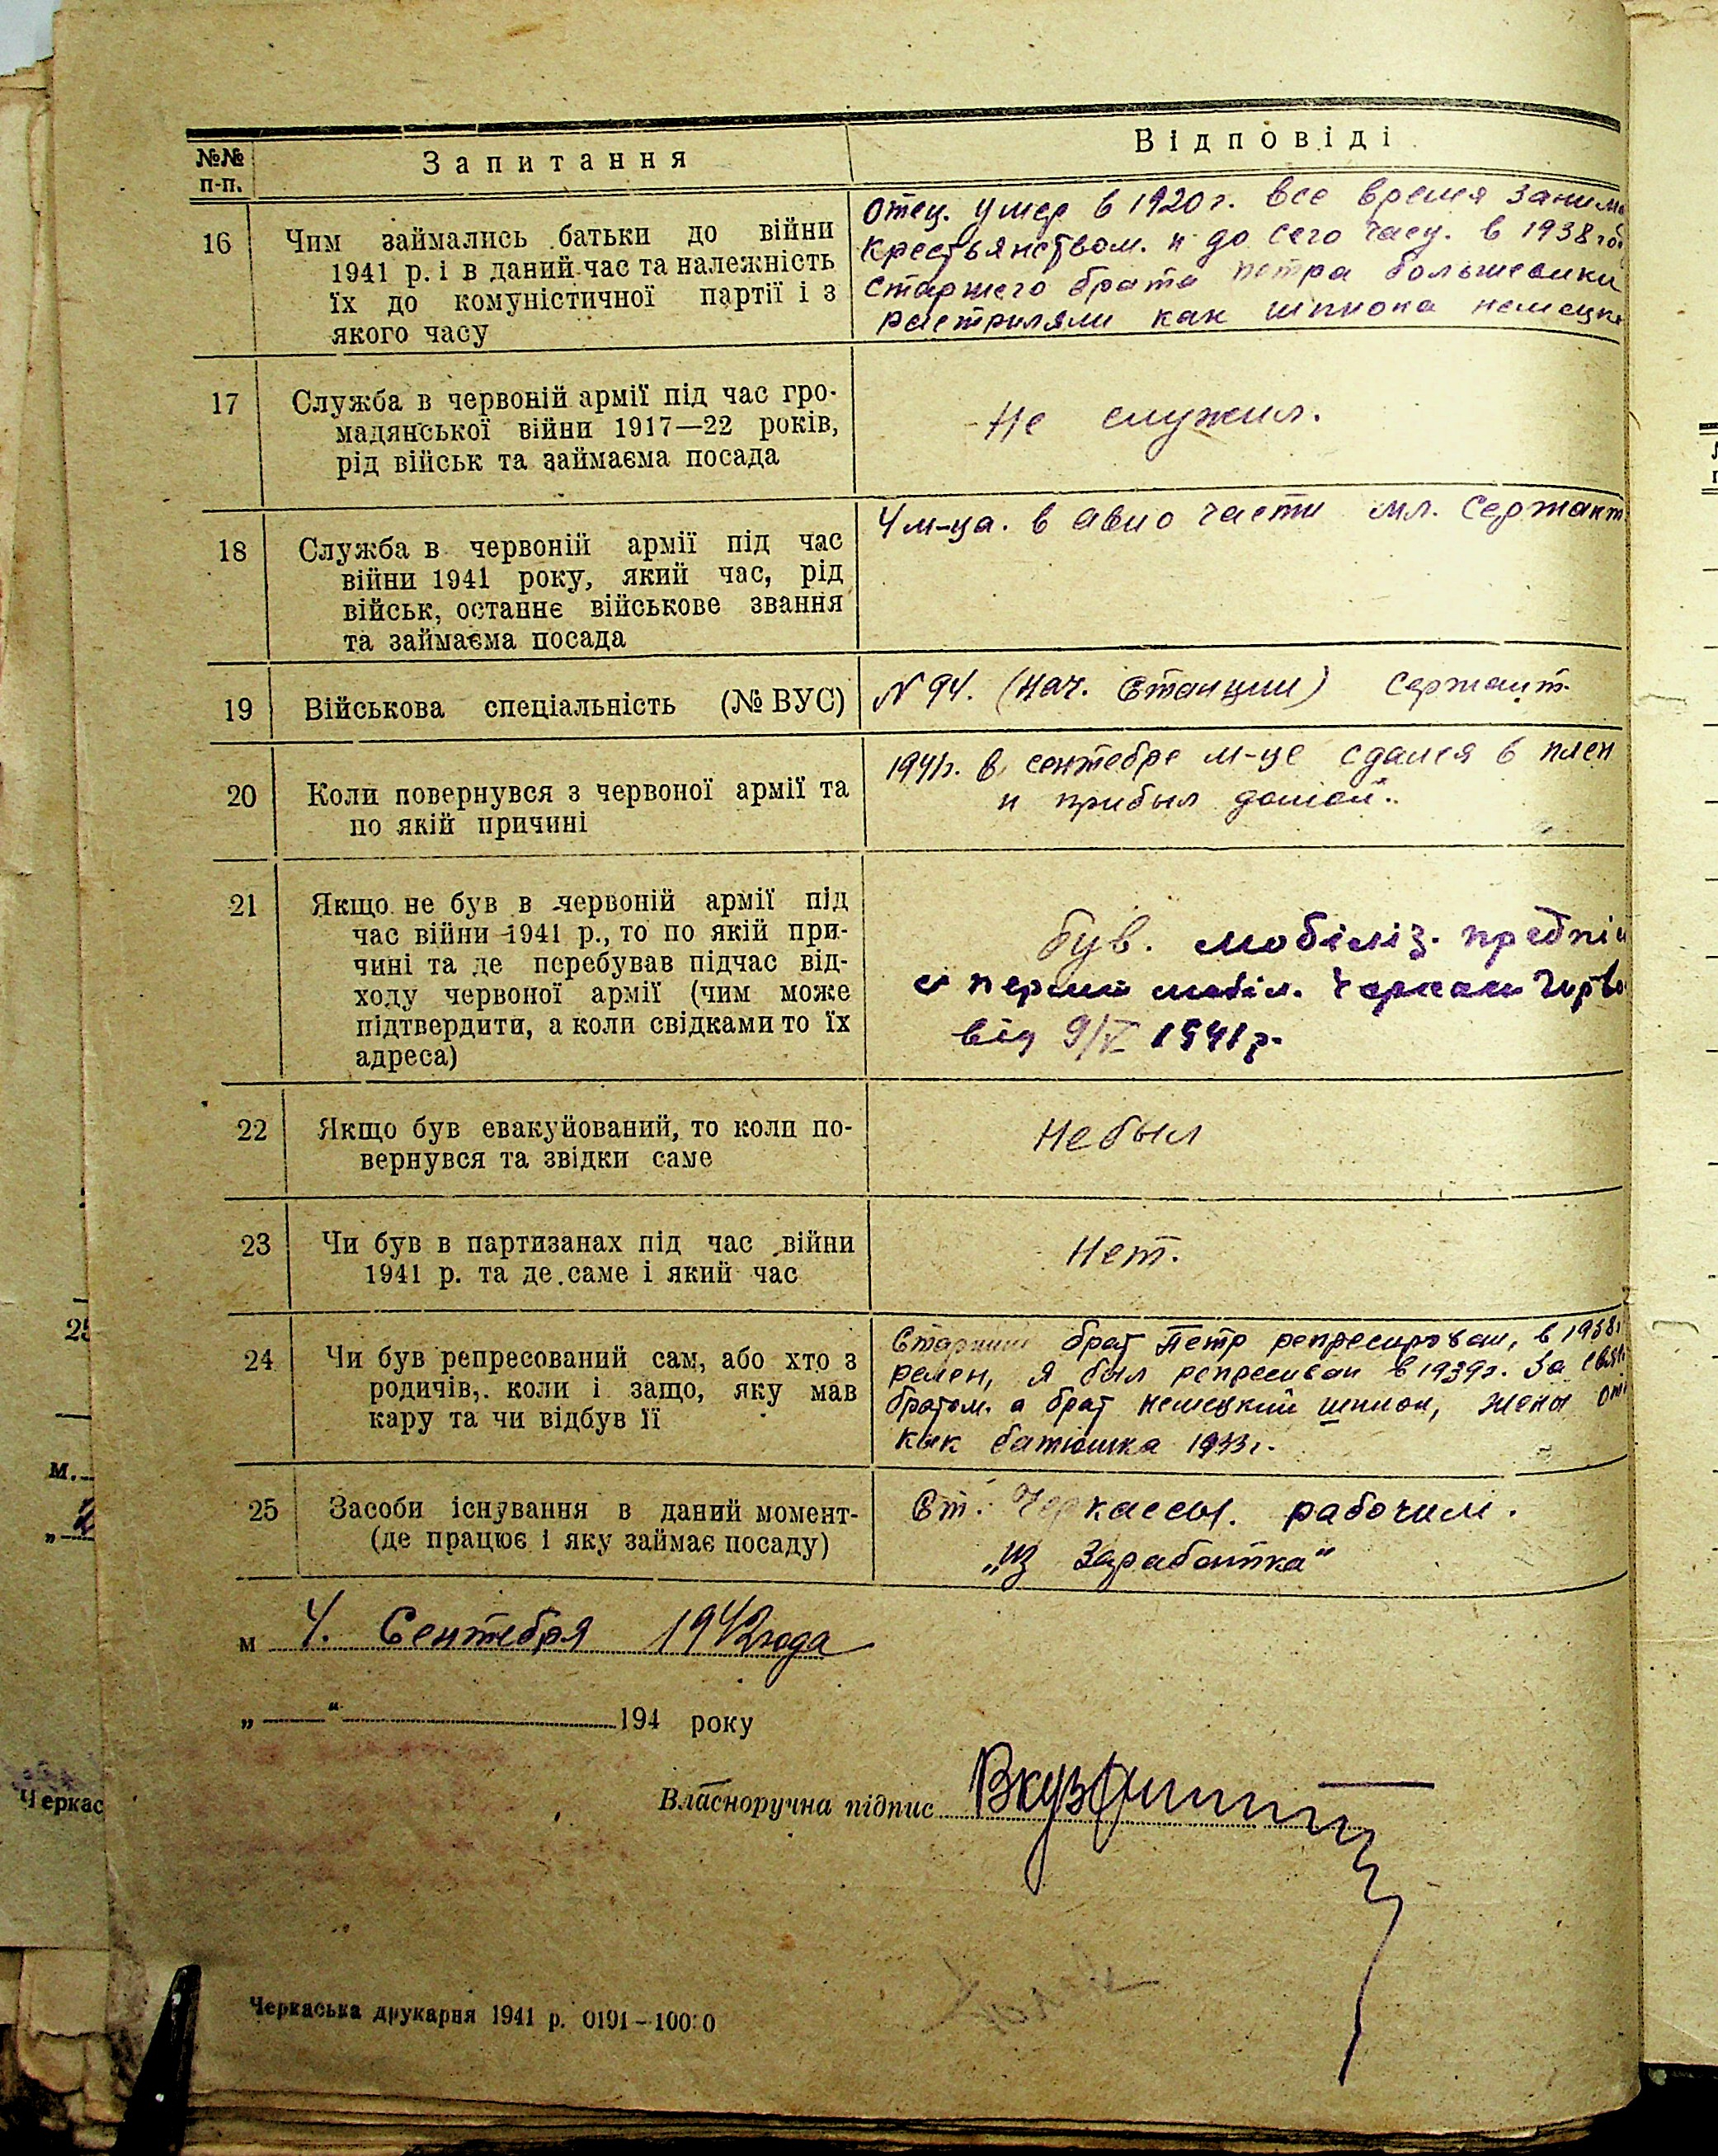 №№ п-п.
Запитання
Відповіді
16
Чим займались батьки до війни
1941 р. і в даний час та належність
їх до комуністичної партії і з
якого часу
Отец. умер в 1920 г. все время заним
крестьянством. и до сего часу. в 1938 год
старшего брата петра большевики
растриляли как шпиона немецк
17
Служба в червоній армії під час гро-
мадянської війни 1917—22 років,
рід військ та займаєма посада
Не служил.
18
Служба в червоній армії під час
війни 1941 року, який час, рід
військ, останнє військове звання
та займаєма посада
4 м-ца. в авио части мл. Сержант
19
Військова спеціальність (№ ВУС)
N 94. (нач. Станции) Сержант.
20
Коли повернувся з червоної армії та
по якій причині
1941г. в сентебре м-це сдался в плен
и прибыл домой.
21
Якщо не був в червоній армії під
час війни 1941 р., то по якій при-
чині та де перебував підчас від-
ходу червоної армії (чим може
підтвердити, а коли свідками то їх
адреса)
був. мобіліз.
від 9/V 1941 р.
22
Якщо був евакуйований, то коли по-
вернувся та звідки саме
Не был
23
Чи був в партизанах під час війни
1941 р. та де саме і який час
Нет.
24
Чи був репресований сам, або хто з
родичів, коли і защо, яку мав
кару та чи відбув її
Старший брат Петр репресирован, в 1938г
релен, я был репресиван в 1939г. За связ
братом. а брат немецкий шпион, жены от
как батюшка 1933г.
25
Засоби існування в даний момент-
(де працює і яку займає посаду)
Ст. Черкассы. рабочим.
„из Заработка“
м 4. Сентебря 1942 года
„ “ 194 року
Власноручна підпис
Черкаська друкарня 1941 р. 0191—10000
25
м.
Черкас